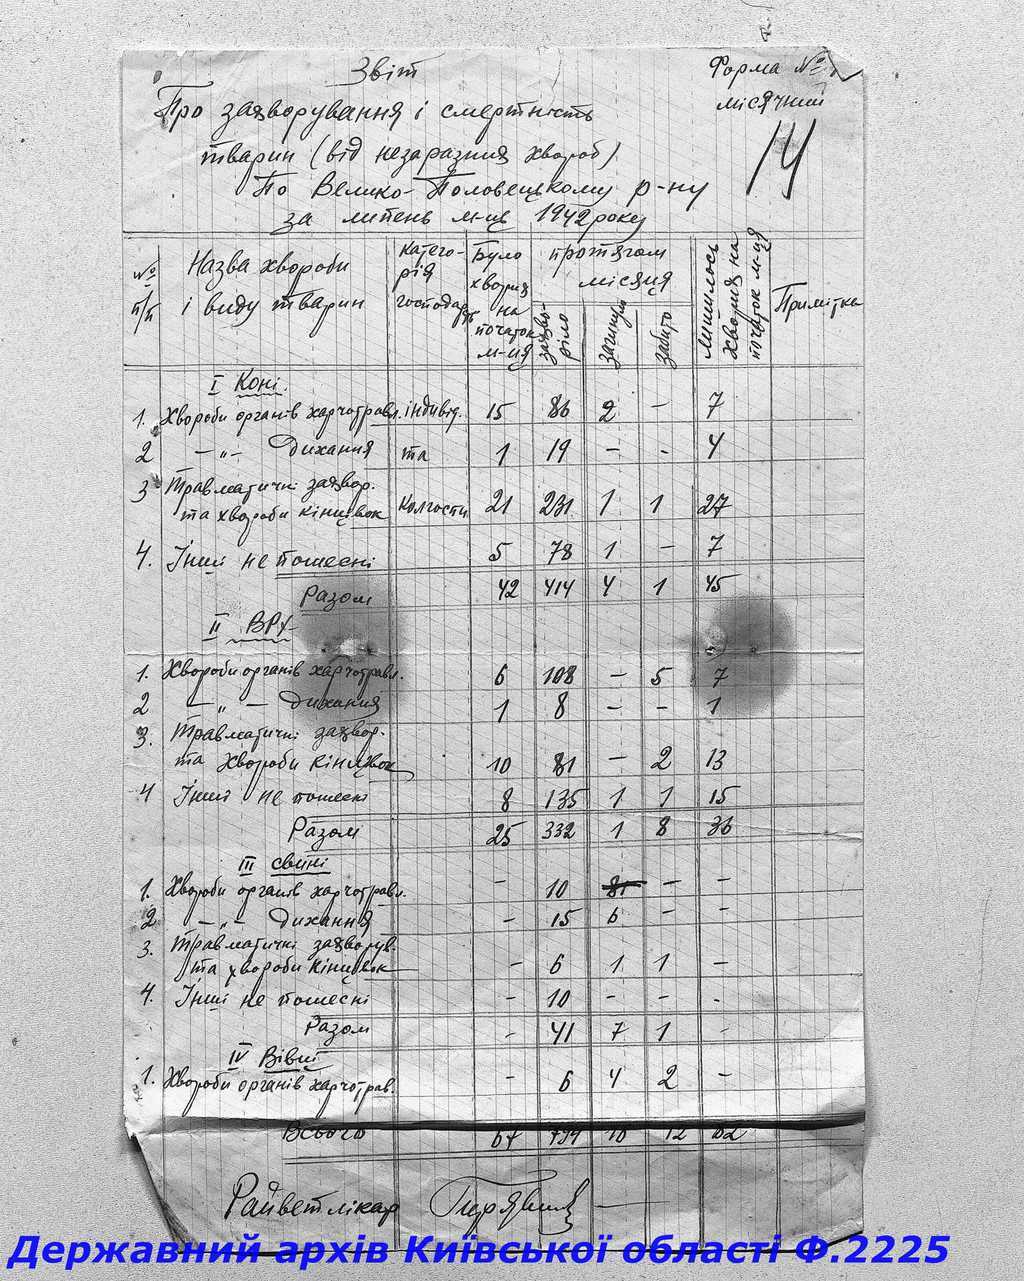 Звіт
Форма №
місячний
14
Про захворування і смертність
тварин (від незаразних хвороб)
По Велико-Половецькому р-ну
за липень м-ць 1942 року
№ п/п
Назва хвороби і виду тварин
Катего-рія господар
Було хворих на початок м-ця
протягом місяця
захво-ріло
загинули
забито
лишилось хворих на початок м-ця
Примітка
I Коні.
1. Хвороби органів харчотравл. індивід. 15 86 2 – 7
2 –"– Дихання та 1 19 – - 4
3 Травматичні захвор.
та хвороби кінцівок Колгоспн. 21 231 1 1 27
4. Інші не пошесні 5 78 1 – 7
Разом 42 414 4 1 45
II ВРХ
1. Хвороби органів харчотравл. 6 108 – 5 7
2 –"– Дихання 1 8 – – 1
3. Травматичні захвор.
та хвороби кінцівок 10 81 – 2 13
4 Інші не пошесні 8 135 1 1 15
Разом 25 332 1 8 36
III свині
1. Хвороби органів харчотравл. – 10 – –
2 –"– Дихання – 15 6 – –
3. Травматичні захворув.
та хвороби кінцівок – 6 1 1 –
4. Інші не пошесні – 10 – – -
Разом - 41 7 1 -
IV Вівці
1. Хвороби органів харчотрав. – 6 4 2 –
Всього 67 12
Райветлікар
Державний архів Київської області Ф.2225